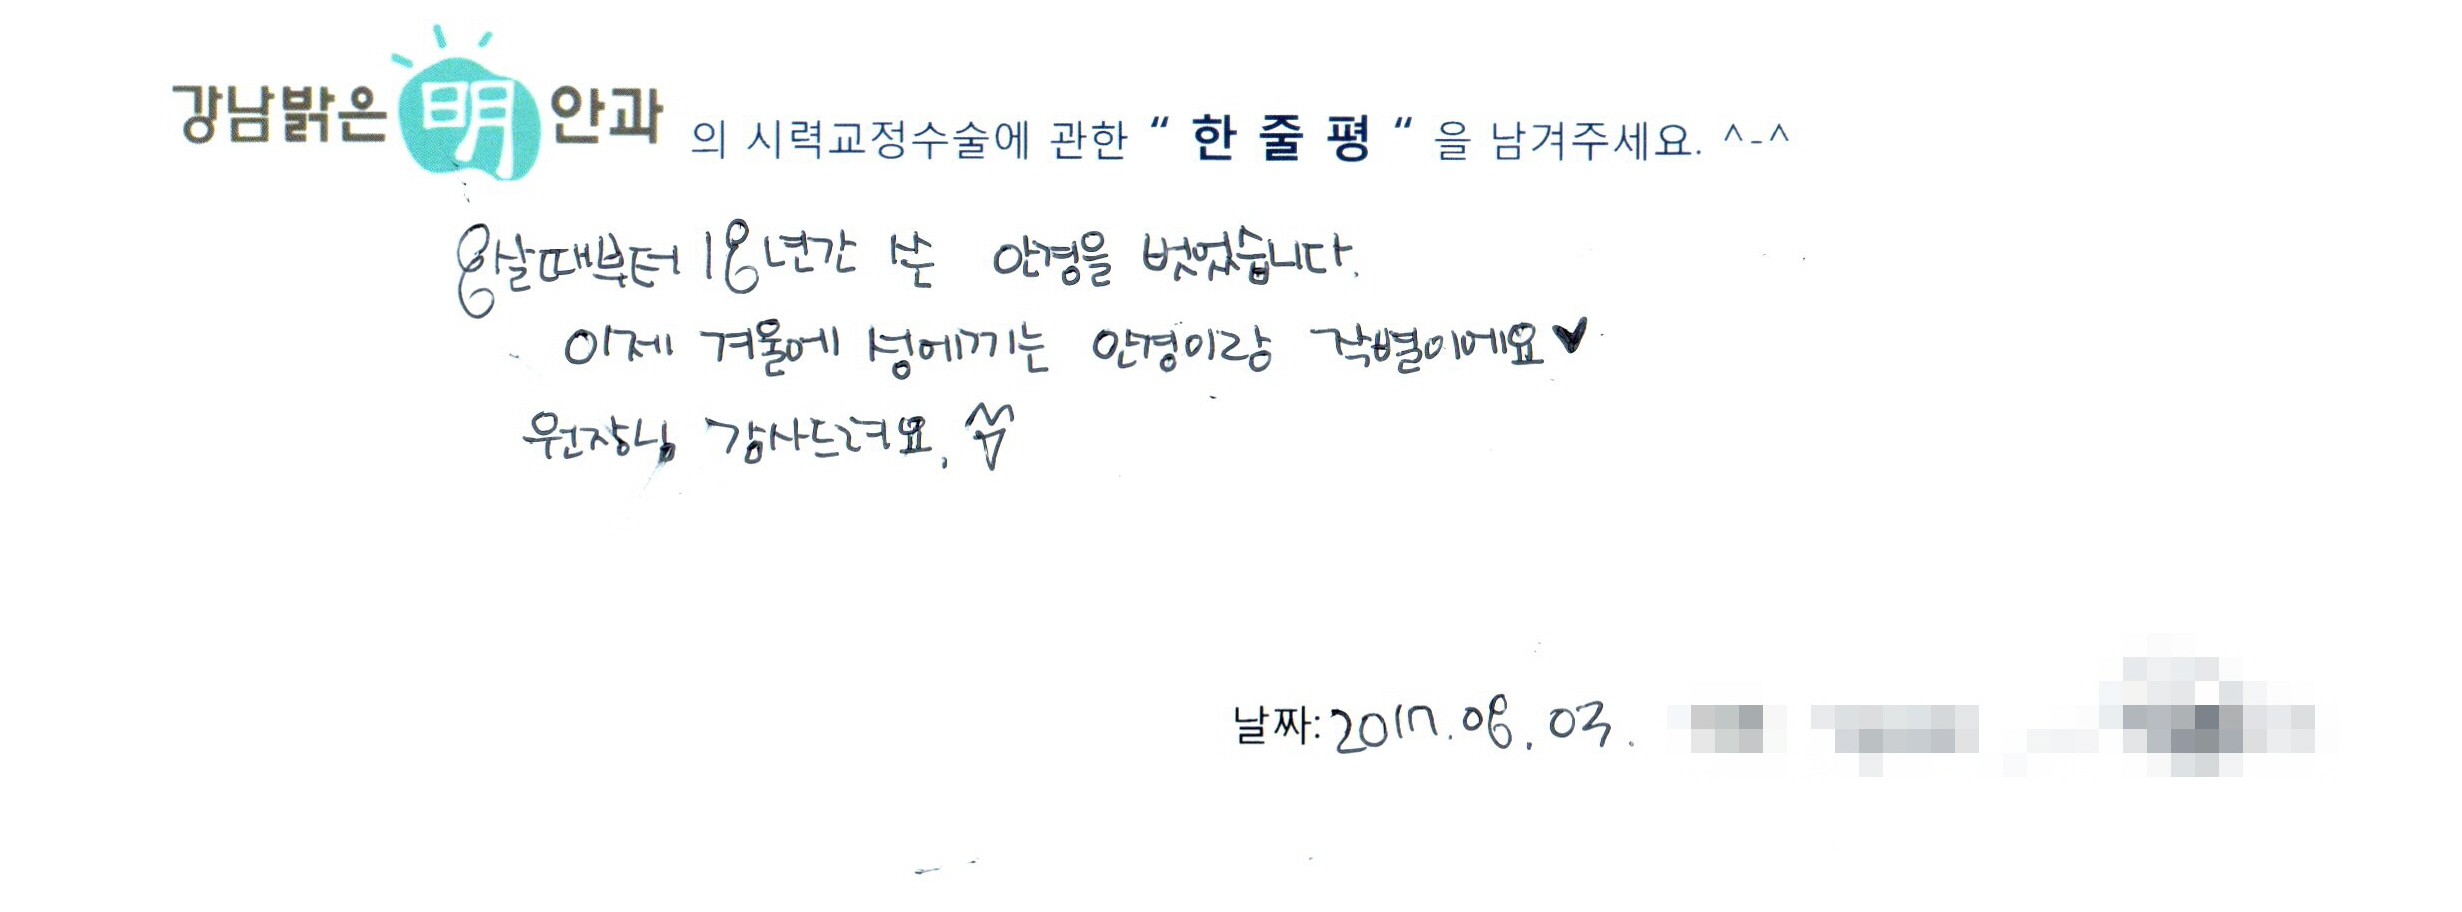 강남밝은 明 안과 의 시력교정수술에 관한 “ 한 줄 평 “ 을 남겨주세요. ^-^
8살때부터 18년간 쓴 안경을 벗었습니다.
이제 겨울에 성에끼는 안경이랑 작별이에요♥
원장님 감사드려요.
날짜: 2017.08.03.